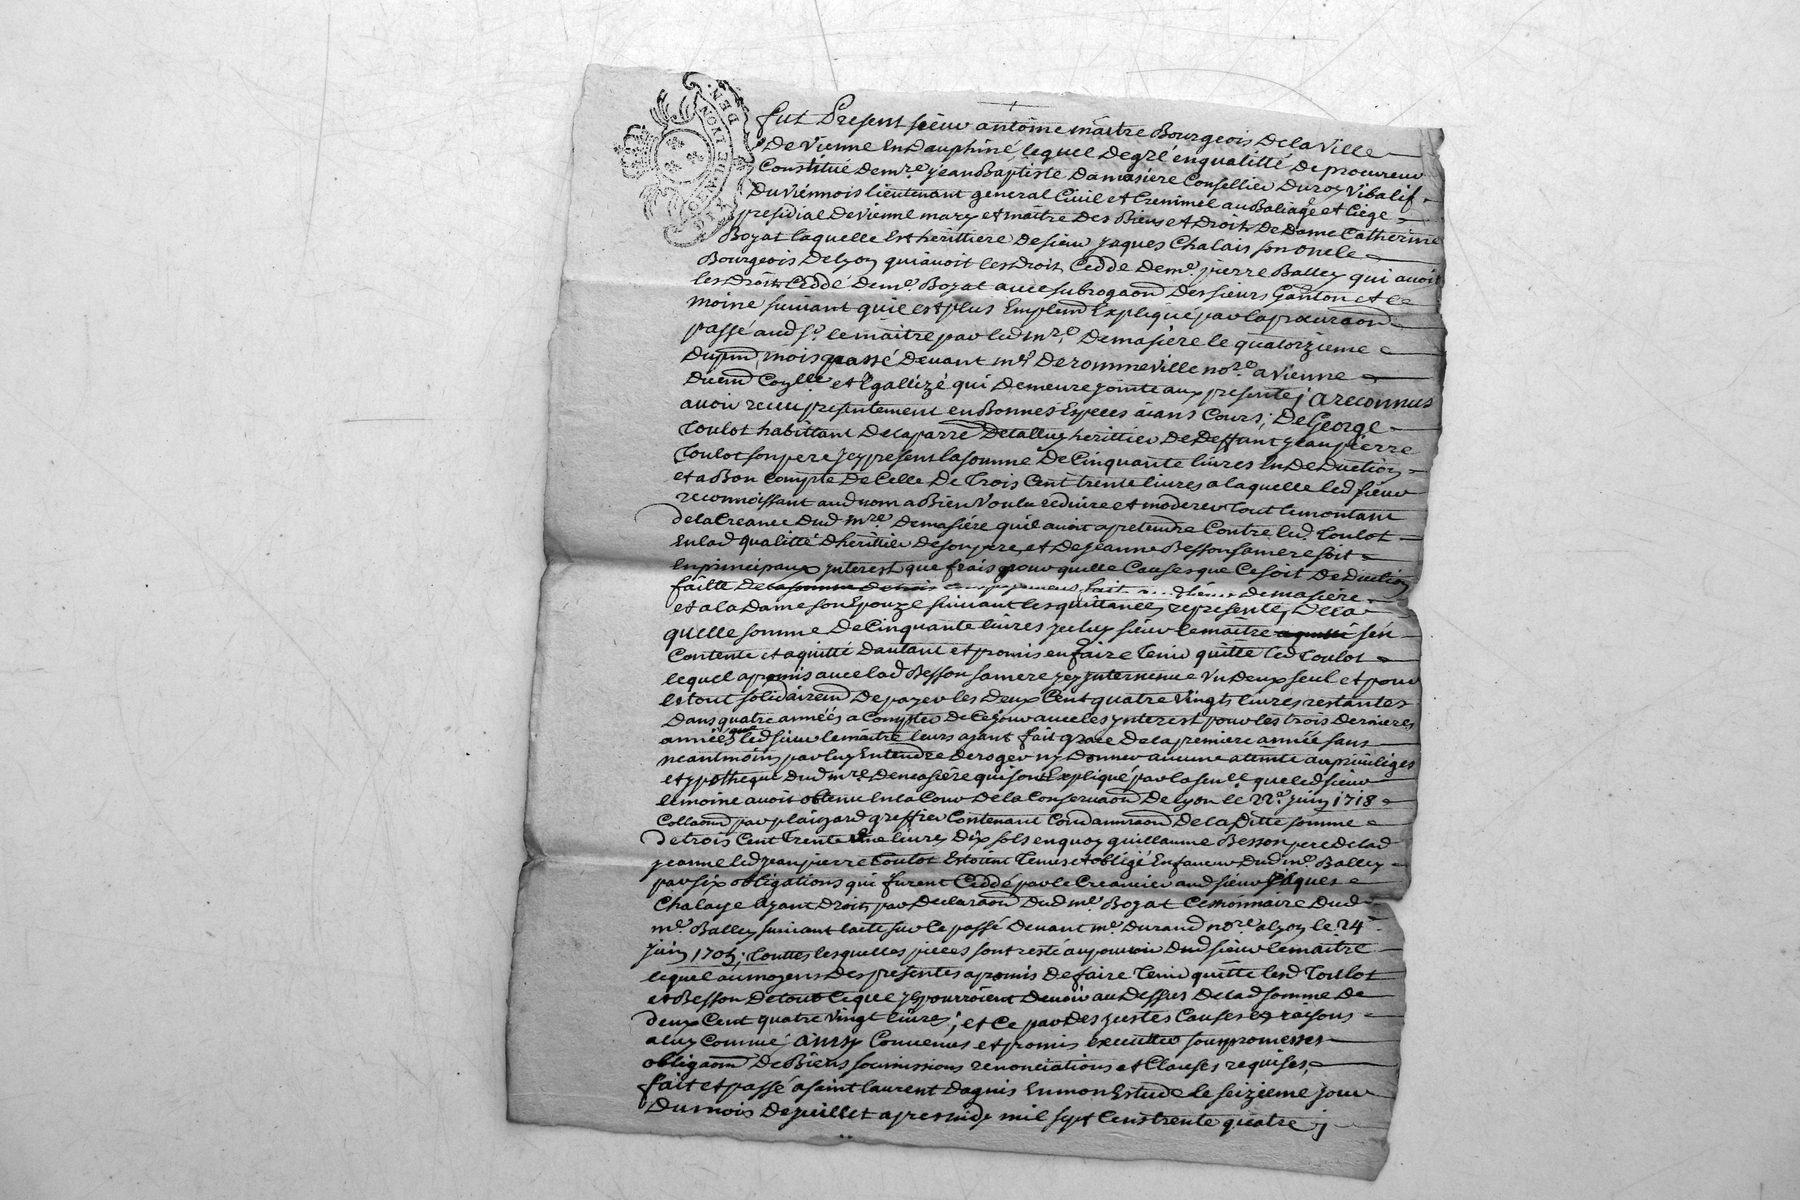 DE LYON
fut Present sieur antoine maitre Bourgeois De la Ville
De Vienne En Dauphiné, lequel De gré en qualitté De procureur
Constitué De mre. jean Baptiste Damasiere Conseillier Du roy Vibalif
Du Viennois lieutenant general Civil et Criminel au Baliage et Ciege
presidial De Vienne mary et maitre Des Biens et Droits De Dame Catherine
Boyat laquelle Est herittiere De sieur jaques Chalais son oncle
Bourgeois De lyon qui avoit les Droits Cedde De me. pierre Balley qui avoit
les Droits Ceddé De me. Boyat avec subrogaon Des sieurs Ganton et le
moine suivant qu'il est plus Emplemt Expliqué par la procuraon
passé aud sr. le maitre par led mre. Demasiere le quatorzieme
Du mois passé Devant me. De rommeville nore. a Vienne
Duem̄ et legallizé qui Demeure jointe aux presentes a reconnus
avoir receu presentement en Bonnes Especes aians Cours, De George
Toulot habittant De la parre herittier De Deffunt jean pierre
Toulot son pere jcy present la somme De Cinquante livres En Deduction
et a Bon Compte De Celle De Trois Cent trente livres a laquelle led sieur
reconnoissant aud nom a Bien Voulu reduire et moderer Tout le montant
de la Creance Dud mre. Demasiére qu'il avoit a pretendre Contre led. Toulot
En lad qualitté D'herittier De son pere, et De jeanne Besson sa mere soit
En principaux jnterest que frais pour quelle Causes que Ce soit Deduction
faitte De la somme de trois payemens fait Demasiére
et a la Dame son Epouze suivant les quittances represente, De la
quelle somme De Cinquante livres jceluy sieur le maitre a quitté s'en
Contente et a quitté D'autant et promis en faire Tenir quitte led Toulot
lequel a promis avec lad Besson sa mere jcy jntervenue Un Deux seul et pour
le tout solidairemt De payer les Deux Cent quatre Vingts livres restantes
Dans quatre années a Compter de Ce jour avec les jnterest pour les trois Dernieres
années que led sieur le maitre leurs ayant fait grace De la premiere année sans
neantmoins par luy Entendre Deroger ny Donner aucune atteinte au privileges
et ypotheque Dud mre. Demasiére qui sont Expliqué par la senlle que led sieur
le moine avoit obtenu En la Cour De la Conservaon De lyon le 22e. juin 1718
Collaonné par plaizard greffier Contenant Condamnaon De la Ditte somme
de trois Cent Trente Une livres Dix sols en quoy guillaume Besson pere De lad
jeanne led jean pierre Toulot Estoient Tenus et obligé En faveur Dud me. Balley
par six obligations qui furent Ceddé par le Creancier aud sieur jaques
Chalaye ayant Droits par Declaraon Dud me. Boyat Cessionnaire Dud
me. Balley suivant l'acte sur Ce passé Devant me. Durand nore. a lyon le 24e.
juin 1705; Touttes lesquelles pieces sont resté au pouvoir Dud sieur le maitre
lequel au moyens Des presentes a promis De faire Tenir quitte lesd Toulot
et Besson De tout Ce que jls pourroient Devoir au Dessus De lad somme De
deux Cent quatre Vingt livres; et Ce par Des justes Causes et raisons
a luy Connue ainsy Convenus et promis executter sous promesses
obligaons De Biens soumissions renonciations et Clauses requises,
fait et passé a saint laurent Dagnis En mon Estude le seizieme jour
Du mois De juillet apres midy mil sept Cens trente quatre j